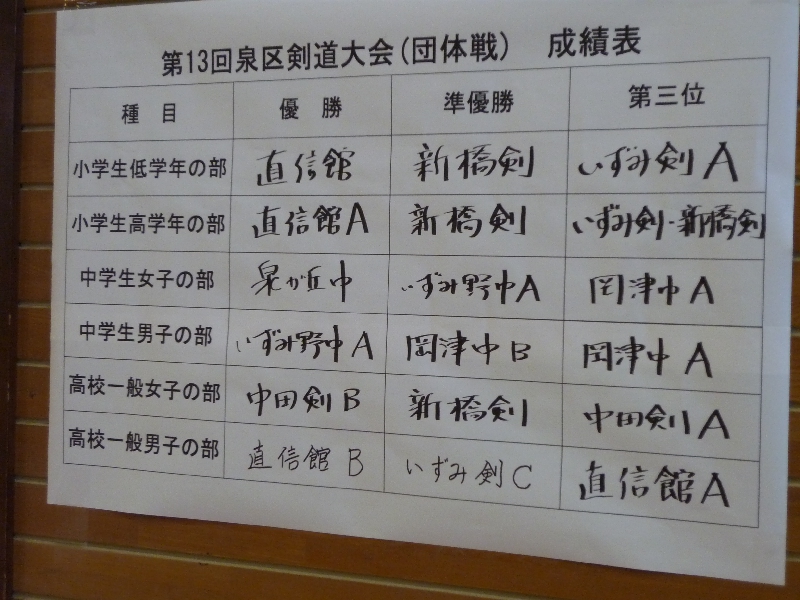 第13回泉区剣道大会(団体戦) 成績表
種目 優勝 準優勝 第三位
小学生低学年の部 直信館 新橋剣 いずみ剣A
小学生高学年の部 直信館A 新橋剣 いずみ剣・新橋剣
中学生女子の部 泉が丘中 いずみ野中A 岡津中A
中学生男子の部 いずみ野中A 岡津中B 岡津中A
高校一般女子の部 中田剣B 新橋剣 中田剣A
高校一般男子の部 直信館B いずみ剣C 直信館A